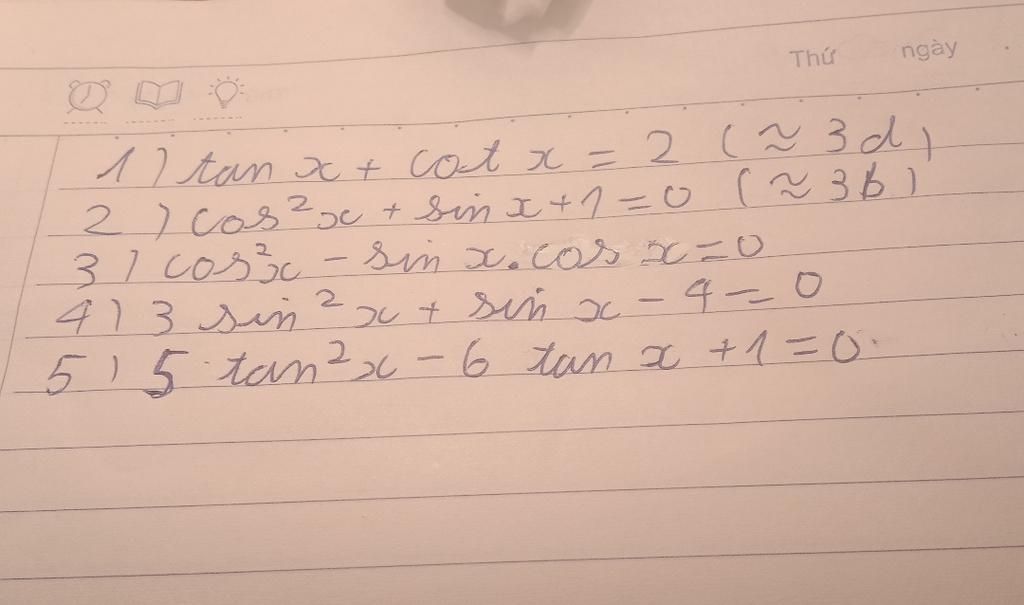 Thứ ngày
1) tan x + cot x = 2 (≈ 3d)
2) cos²x + sin x + 1 = 0 (≈ 3b)
3) cos²x - sin x . cos x = 0
4) 3 sin²x + sin x - 4 = 0
5) 5 tan²x - 6 tan x + 1 = 0